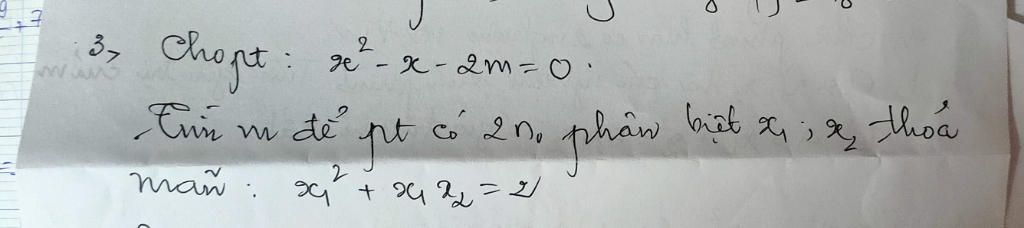 3, Cho pt : x² - x - 2m = 0 .
Tìm m để pt có 2 n₀ phân biệt x₁ ; x₂ thoả
mãn : x₁² + x₁ x₂ = 2